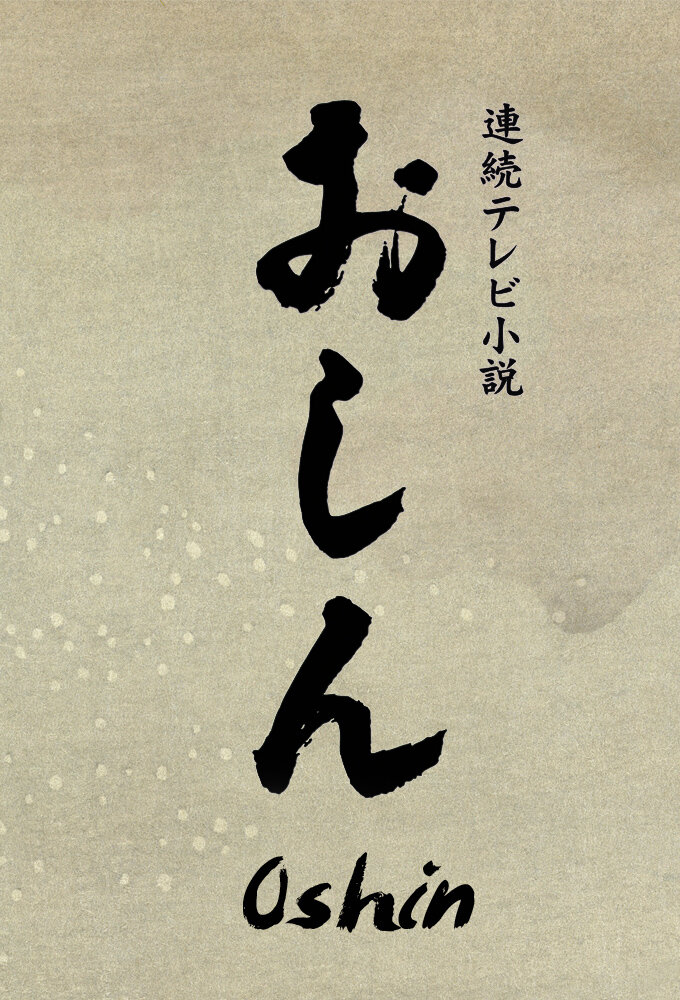 連続テレビ小説
おしん
Oshin